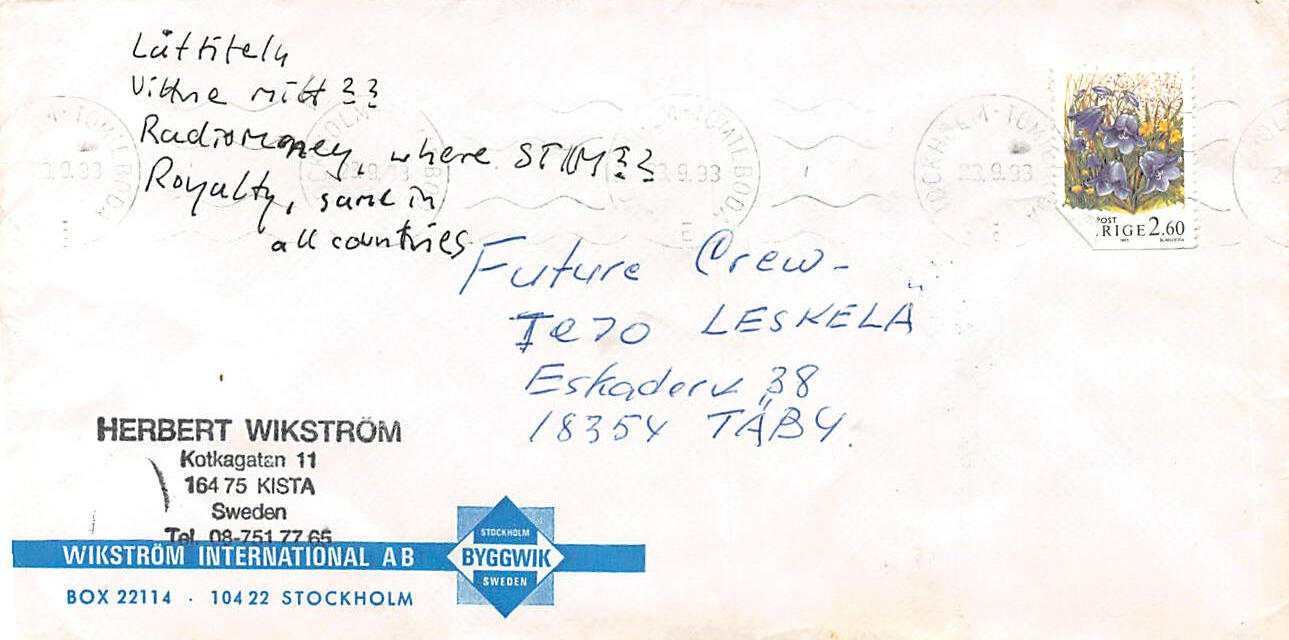 Låttiteln
Vittne mitt ??
Radiomoney, where STIM??
Royalty, same in
all countries
STOCKHOLM-TOMTEBODA
23.9.93
POST
RIGE 2.60
Future Crew-
Tero LESKELÄ
Eskaderv 38
18354 TÄBY.
HERBERT WIKSTRÖM
Kotkagatan 11
164 75 KISTA
Sweden
Tel. 08-751 77 65
WIKSTRÖM INTERNATIONAL AB
BOX 22114 · 104 22 STOCKHOLM
STOCKHOLM
BYGGWIK
SWEDEN